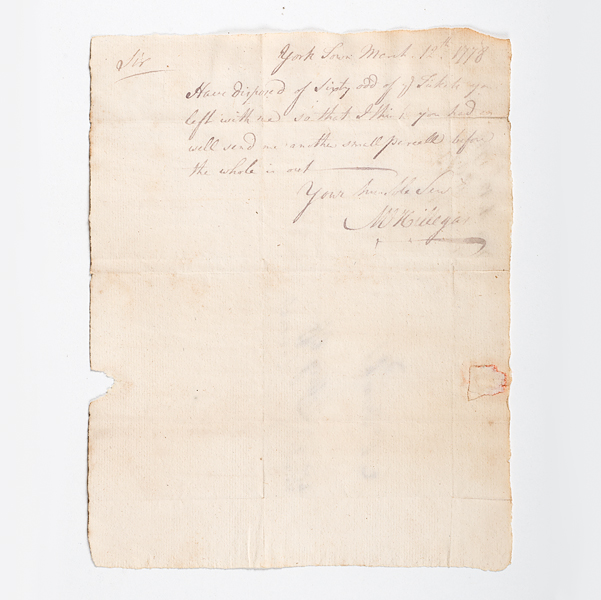 Sir. York Town March 12th. 1778
Have disposed of Sixty odd of ye Tickets you
left with me so that I think you had as
well send me another small parcell before
the whole is out
Your humble Servt
M Hillegas